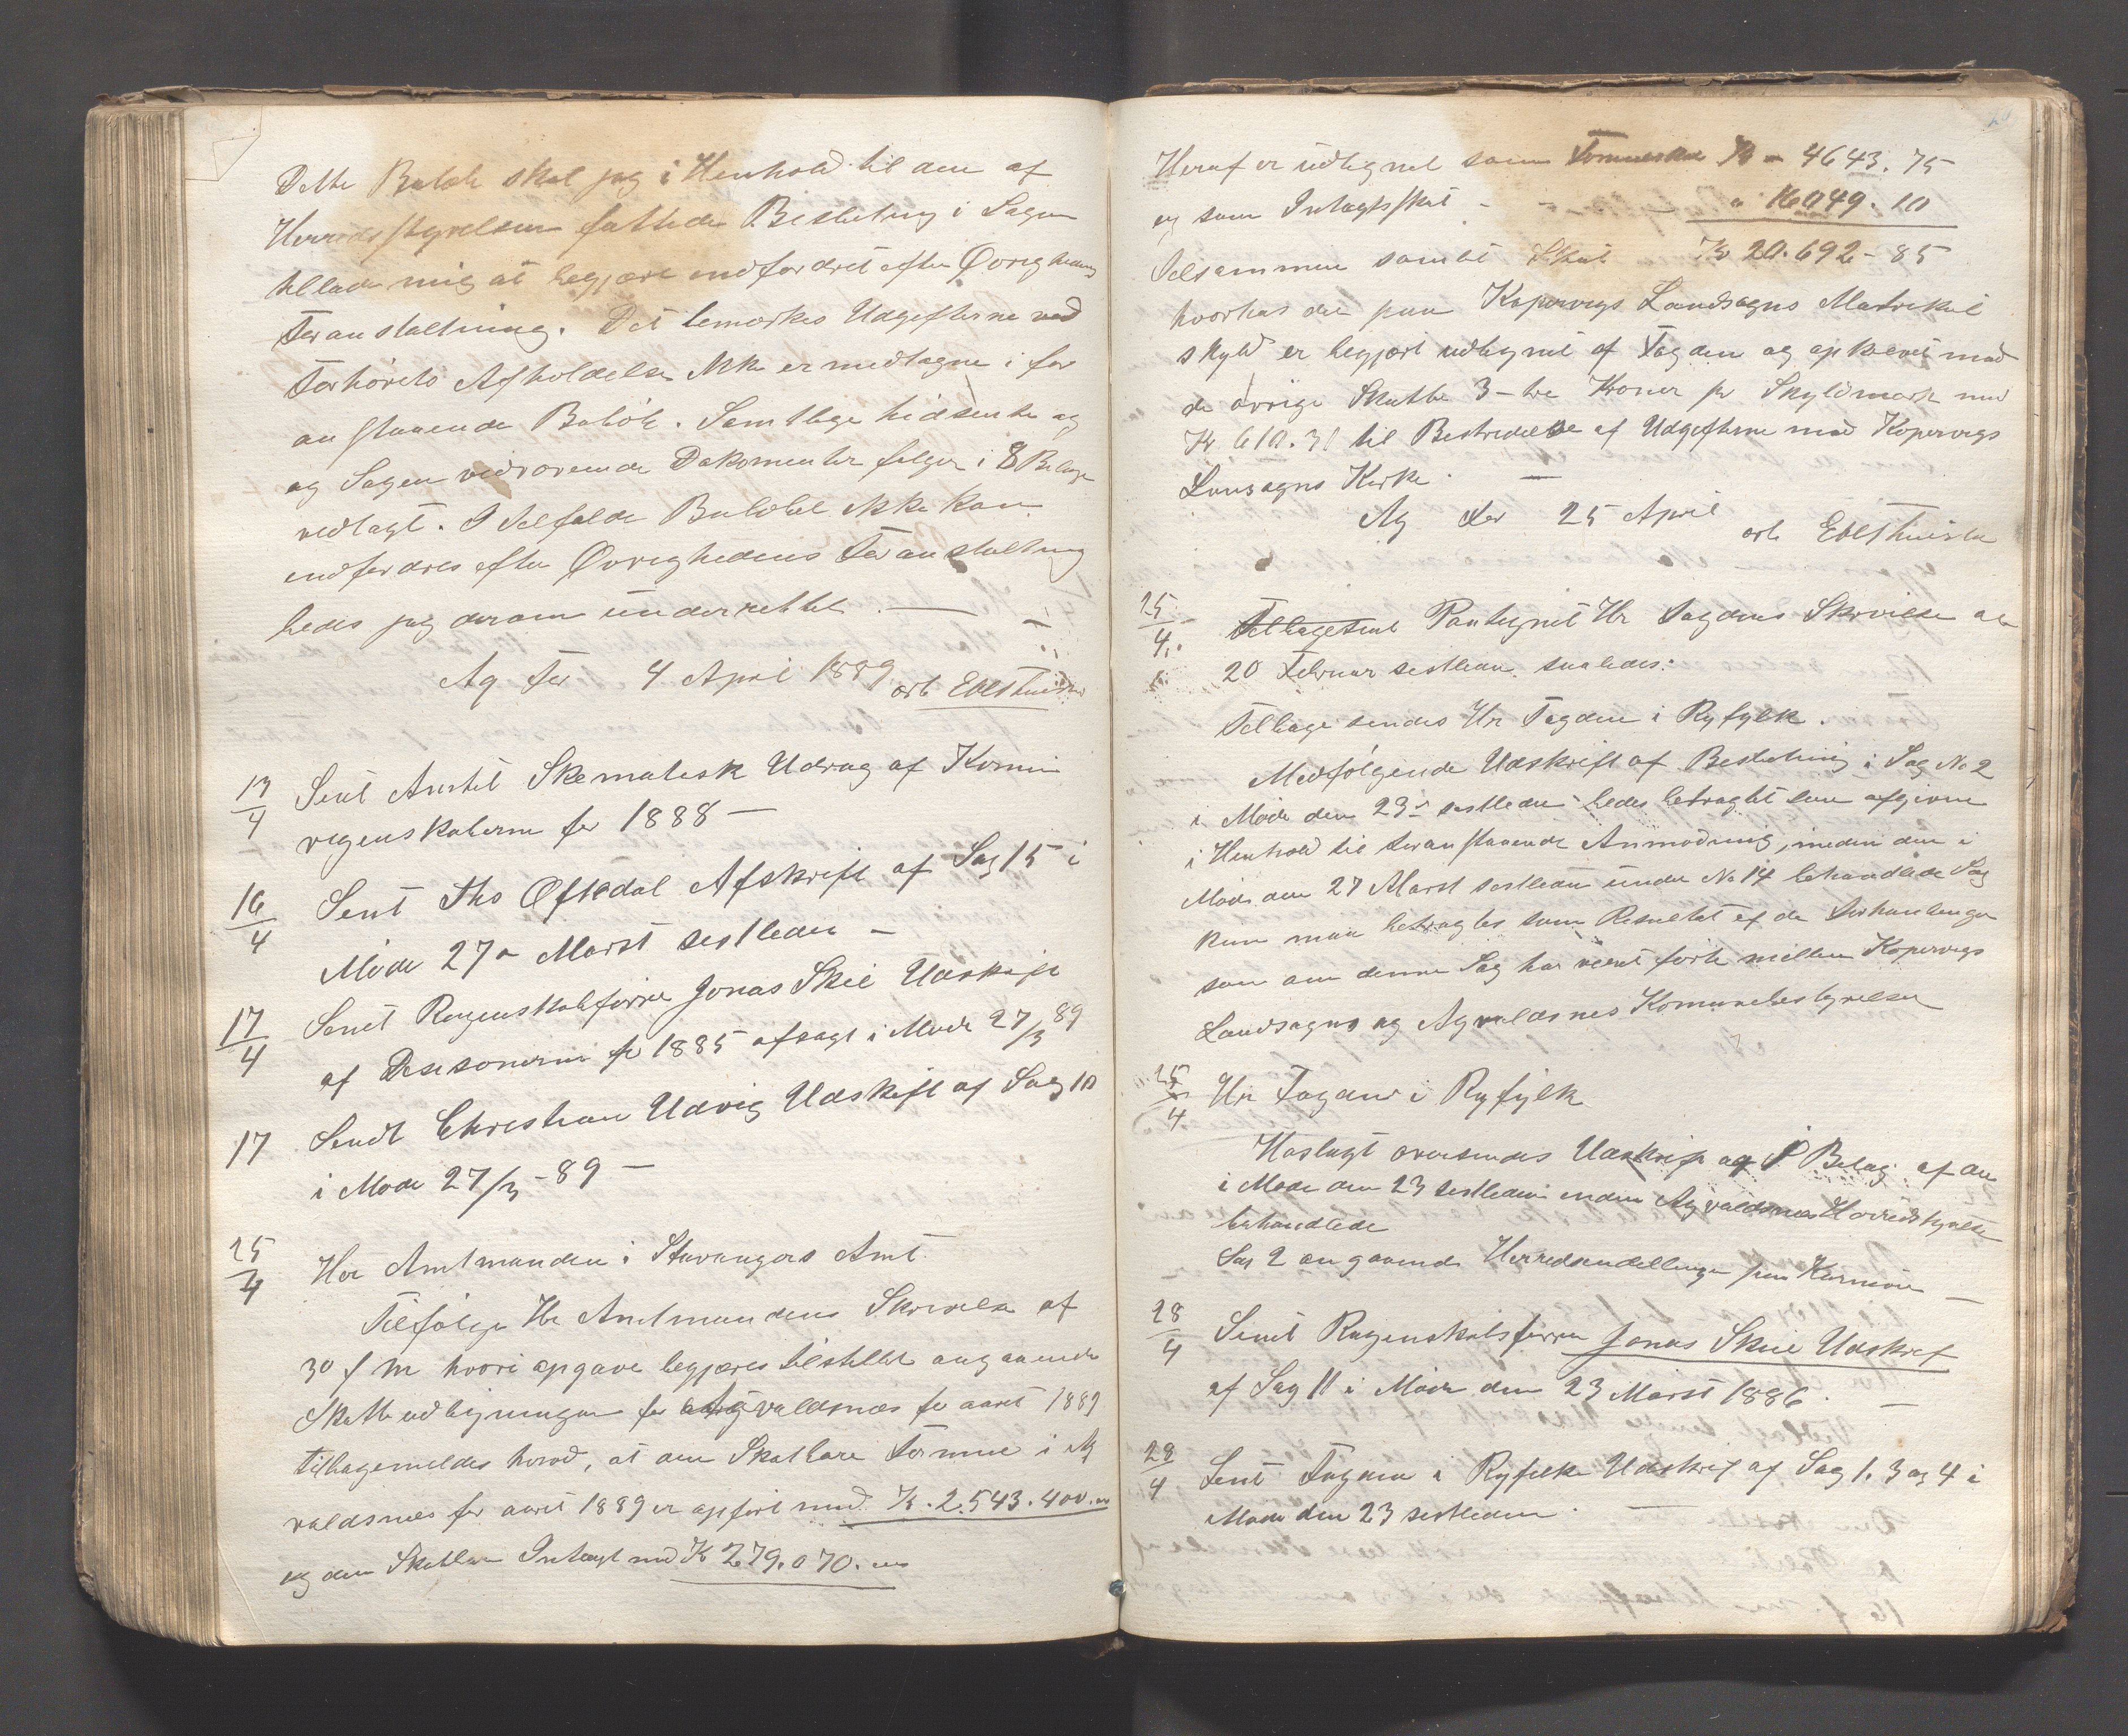 Dette Beløb skal jeg i Henhold til den af
Herredsstyrelsen fattede Beslutning i Sagen
tillade mig at begjære indfordret efter Øvrighedens
Foranstaltning. Det bemærkes Udgifterne ved
Forhørets Afholdelse ikke er medtagne i for
anstaaende Beløb. Samtlige hidsendte og
og Sagen vedrørende Dokomenter følger i 8 Bilage
vedlagt. I Ifelfalde Beløbet ikke kan
indfordres efter Øvrighedens Foranstaltning
bedes jeg derom underrettet. —
Ag For 4 April 1889 arb EblsThuestad
13/4 Sent Amtet Skematisk Udrag af Komu
regenskaberne for 1888 —
16/4 Sent Ths Øftedal Afskrift af Sag 15 i
Møde 27 Marst sestleden —
17/4 Sent Regenskabsfører Jonas Skei Udskrift
af Desisonerne for 1885 afsagt i Møde 27/3 89
17 Sendt Christian Udvig Udskrift af Sag 10
i Møde 27/3 - 89 —
25/4 Her Amtmanden i Stavangers Amt
Tilfølge Hr Amtmandens Skrivelse af
30 f m hvori opgave begjæres tilstillet angaaende
Skatteudligningen for Agvaldsnæs for aaret 1889
tilbagemeldes herved, at den Skatbare Formue i Ag
valdsnes for aaret 1889 er opført med K. 2.543.400.
og den Skatbare Intægt med K 279.070.
Heraf er udlignet som Formueskat Kr - 4643.75
og som Intægtsskat - - - " 16049.10
Tilsammen samlet Skat Kr 20.692-85
hvorhos der paa Kopervigs Landsogns Matrikul
skyld er begjært udlignet af Fogden og opkrevet med
de øvrige Skatter 3 - tre Kroner pr Skyldmark med
Kr 610.31 til Bestridelse af Udgifterne med Kopervigs
Lansogns Kirke. —
Ag For 25 April
arb EblsThuestad
25/4 Tilbagesent Paategnet Hr Fogdens Skrivelse af
20 Februar sestleden saaledes:
Tilbagesendes Hr Fogden i Ryfylk.
Medfølgende Udskrift af Beslutning i Sag No 2
i Møde den 23 sestleden bedes betragtet som afgivne
i Henhold til foranstaaende Anmodning, meden den i
Møde den 27 Marst sestleden under No 14 behandlede Sag
kun maa betragtes som Resultat af de Forhandlinger
som om denne Sag har veret ført mellem Kopervigs
Landsogns og Agvaldsnes Komunebestyrelser
25/4 Hr Fogden i Ryfylk
Hoslagt oversendes Udskrift og 1 Belag af den
i Møde den 23 sestleden inden Agvaldsnes Herredstyrelse
behandlede
Sag 2 angaaende Herredsindelingen paa Karmøen —
28/4 Sent Regenskabsfører Jonas Skeie Udskrif
af Sag 11 i Møde den 23 Marst 1886. —
28/4 Sent Fogden i Ryfylke Udskrif af Sag 1. 3 og 4 i
Møde den 23 sestleden. —